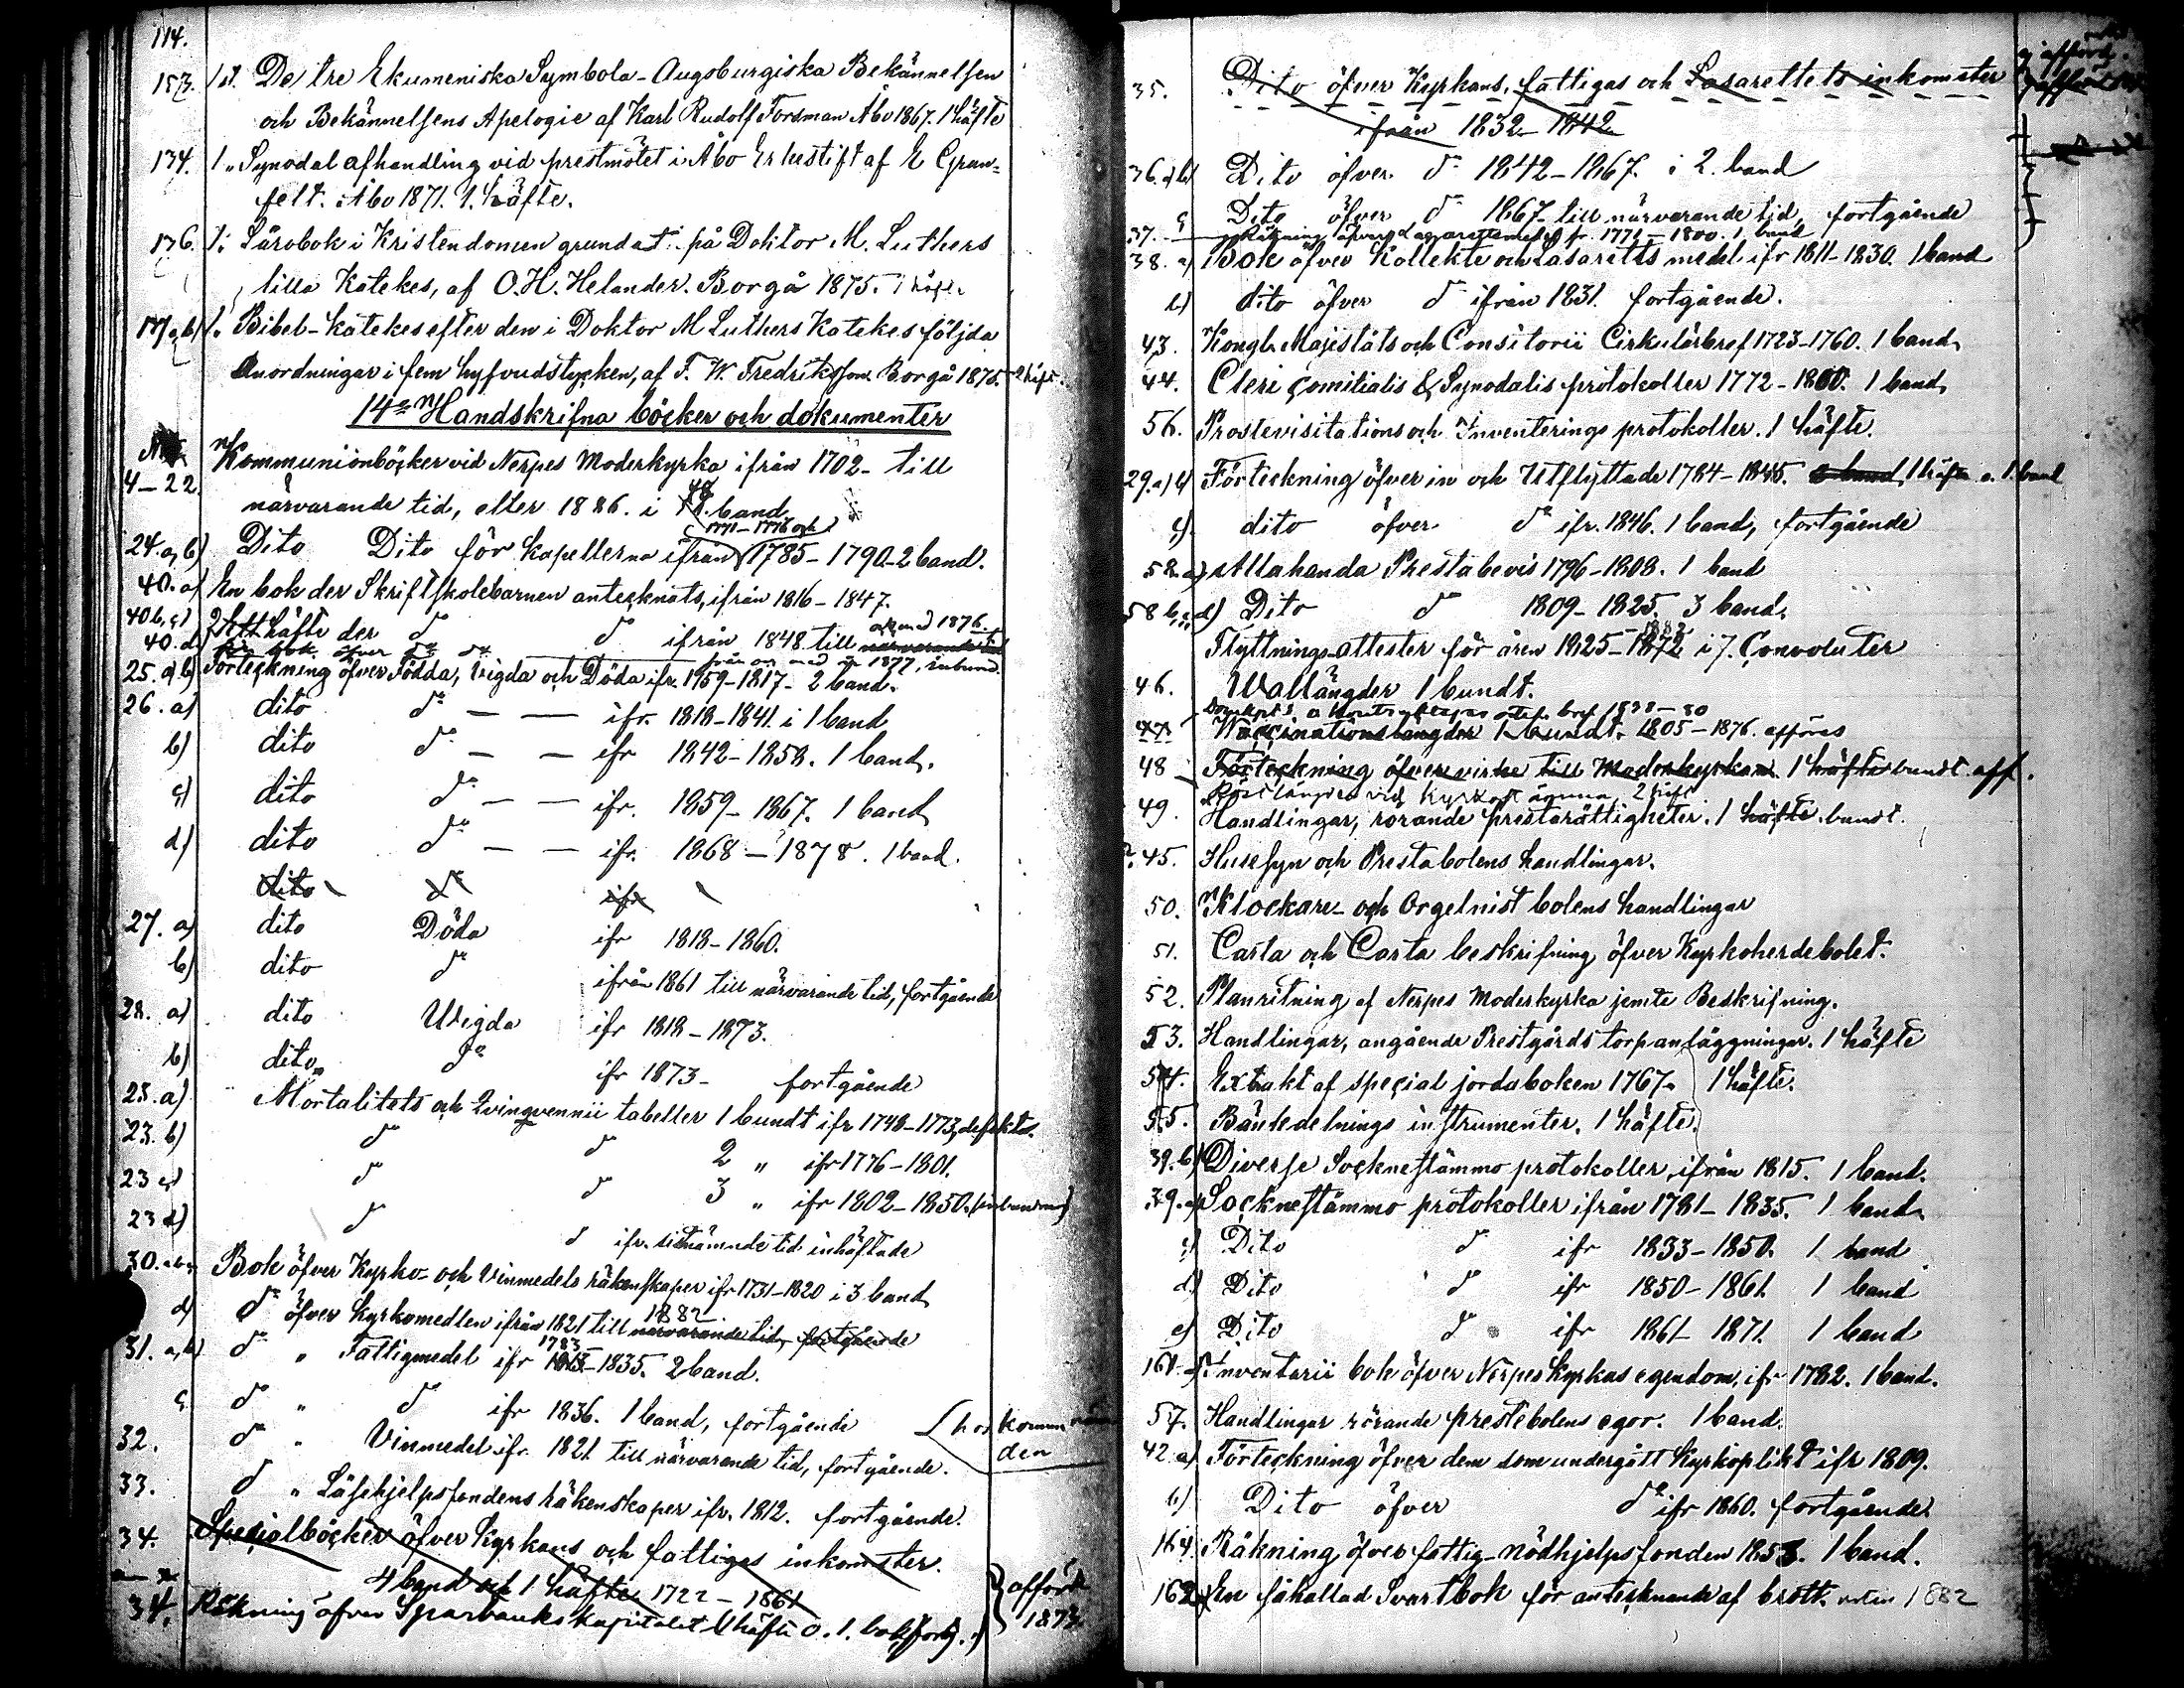 114.
153. 1 st. De tre Ekumeniska Symbola - Augsburgiska Bekännelsen
och Bekännelsens Apelogie af Karl Rudolf Forsman Åbo 1867. 1 häfte
134. 1 " Synodal afhandling vid prestmötet i Åbo Erkestift af E Gran-
felt. Åbo 1871. 1. häfte.
136. 1: Lärobok i Kristendomen grundat på Doktor M. Luthers
lilla Katekes, af O. H. Helander. Borgå 1875. 1 häft.
137 a, b) 1. Bibel-Katekes efter den i Doktor M Luthers Katekes följda
Anordningar i fem hufvudstycken, af F. W. Fredriksson. Borgå 1875. 2 häft.
14de Handskrifna böcker och dokumenter
No Kommunionböcker vid Nerpes Moderkyrka ifrån 1702 - till
4-22. närvarande tid, eller 1886. i 18. band
1771-1776 och
24. a, b) Dito Dito för Kapellerna ifrån 1785-1790 - 2 band.
40. a) En bok der Skriftskolebarnen antecknats, ifrån 1816-1847.
40 b, c) 2 Ett häfte der do do ifrån 1848 till närvarande tid och med 1876.
40. d) för bok öfver do do från och med år 1877, inbund.
25. a, b) Förteckning öfver Födda, Vigda och Döda ifr. 1759-1817 - 2 band.
26. a) dito do — — ifr. 1818-1841 i 1 band
b) dito do — — ifr 1842-1858. 1 band.
c) dito do — — ifr. 1859-1867. 1 band
d) dito do — — ifr. 1868-1878. 1 band.
dito do ifr
27. a) dito Döda ifr 1818-1860.
b) dito do ifrån 1861 till närvarande tid, fortgående
28. a) dito Wigda ifr 1818-1873.
b) dito do ifr 1873- fortgående
23. a) Mortalitets och Qvinqvennii tabeller 1 bundt ifr 1748-1773, defekta.
23. b) do do 2 " ifr 1776-1801.
23 c) do do 3 " ifr 1802-1850. (inbundna)
23 d) do do ifr. sistnämnde tid inhäftade
30. a b c Bok öfver Kyrko- och Vinmedels räkenskaper ifr 1731-1820 i 3 band
d) do öfver Kyrkomedlen ifrån 1821 till närvarande tid, fortgående 1882
31. a, b) do " Fattigmedel ifr 1783 1813-1835. 2 band.
c. do " do ifr 1836. 1 band, fortgående hos kommunen
32. do " Vinmedel ifr. 1821 till närvarande tid, fortgående. den
33. do " Läsehjelpsfondens räkenskaper ifr. 1812. fortgående.
34. Specialböcker öfver Kyrkans och fattigas inkomster.
4 band och 1 häfte 1722-1861
34. Räkning öfver Sparbanks Kapitalet 1 häfte o. 1. bok, fortg. afförd 1873.
35. Dito öfver Kyrkans, fattigas och Lasarettets inkomster
ifrån 1832-1842
36. a, b) Dito öfver do 1842-1867. i 2. band
c Dito öfver do 1867- till närvarande tid, fortgående
37. Räkning öfver Lazarettsmedel fr. 1771-1800. 1 band
38. a) Bok öfver Kollekte och Lasaretts medel ifr 1811-1830. 1 band
b) dito öfver do ifrån 1831. fortgående.
43. Kongl. Majestäts och Consitorii Cirkulärbref 1723-1760. 1 band
44. Cleri comitialis & Synodalis protokoller 1772-1800. 1 band
56. Prostevisitations och Inventerings protokoller. 1 häfte.
29. a) b) Förteckning öfver in och Utflyttade 1784-1845. 2 band, 1 häfte o. 1. band
c) dito öfver do ifr. 1846. 1 band, fortgående
58. a) Allahanda Prestabevis 1796-1808. 1 band
58 b, c, d) Dito do 1809-1825. 3 band.
Flyttnings-attester för åren 1825-1872 i 7. Convoluter
46. Wallängder 1 bundt.
47. Waccinationslängder 1 bundt. 1805-1876. afföras
48 Förteckning öfver virke till Moderkyrkan 1 häfte bundt. aff.
Röstlängder vid Kyrkostämma 2 häft
49. Handlingar, rörande prestarättigheter. 1 häfte. bundt.
45. Husesyn och Prestabolens handlingar.
50. Klockare- och Orgelnist bolens handlingar
51. Carta och Carta beskrifning öfver Kyrkoherdebolet.
52. Planritning af Nerpes Moderkyrka jemte Beskrifning.
53. Handlingar, angående Prestgårds torpanläggningar. 1 häfte
54. Extrakt af special jordaboken 1767. 1 häfte.
55. Bänkedelnings instrumenter. 1 häfte.
39. b) Diverse Socknestämmo protokoller, ifrån 1815. 1 band.
39. a) Socknestämmo protokoller ifrån 1781-1835. 1 band
c) Dito do ifr 1833-1850. 1 band
d) Dito do ifr 1850-1861. 1 band
e) Dito do ifr 1861-1871. 1 band
161. Inventarii bok öfver Nerpes Kyrkas egendom, ifr 1782. 1 band.
57. Handlingar rörande prestebolens egor. 1 band.
42. a) Förteckning öfver dem som undergått Kyrkoplikt ifr 1809.
b) Dito öfver do ifr 1860. fortgående
164. Räkning öfver fattig-nödhjelpsfonden 1853. 1 band.
162. En såkallad Svartbok för antecknande af brott. 1882